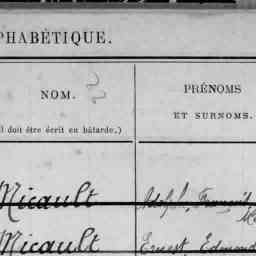 PHABÉTIQUE.
NOM. PRÉNOMS
ET SURNOMS.
l doit être écrit en bâtarde.)
Micault Adolphe François
Micault Ernest Edmond